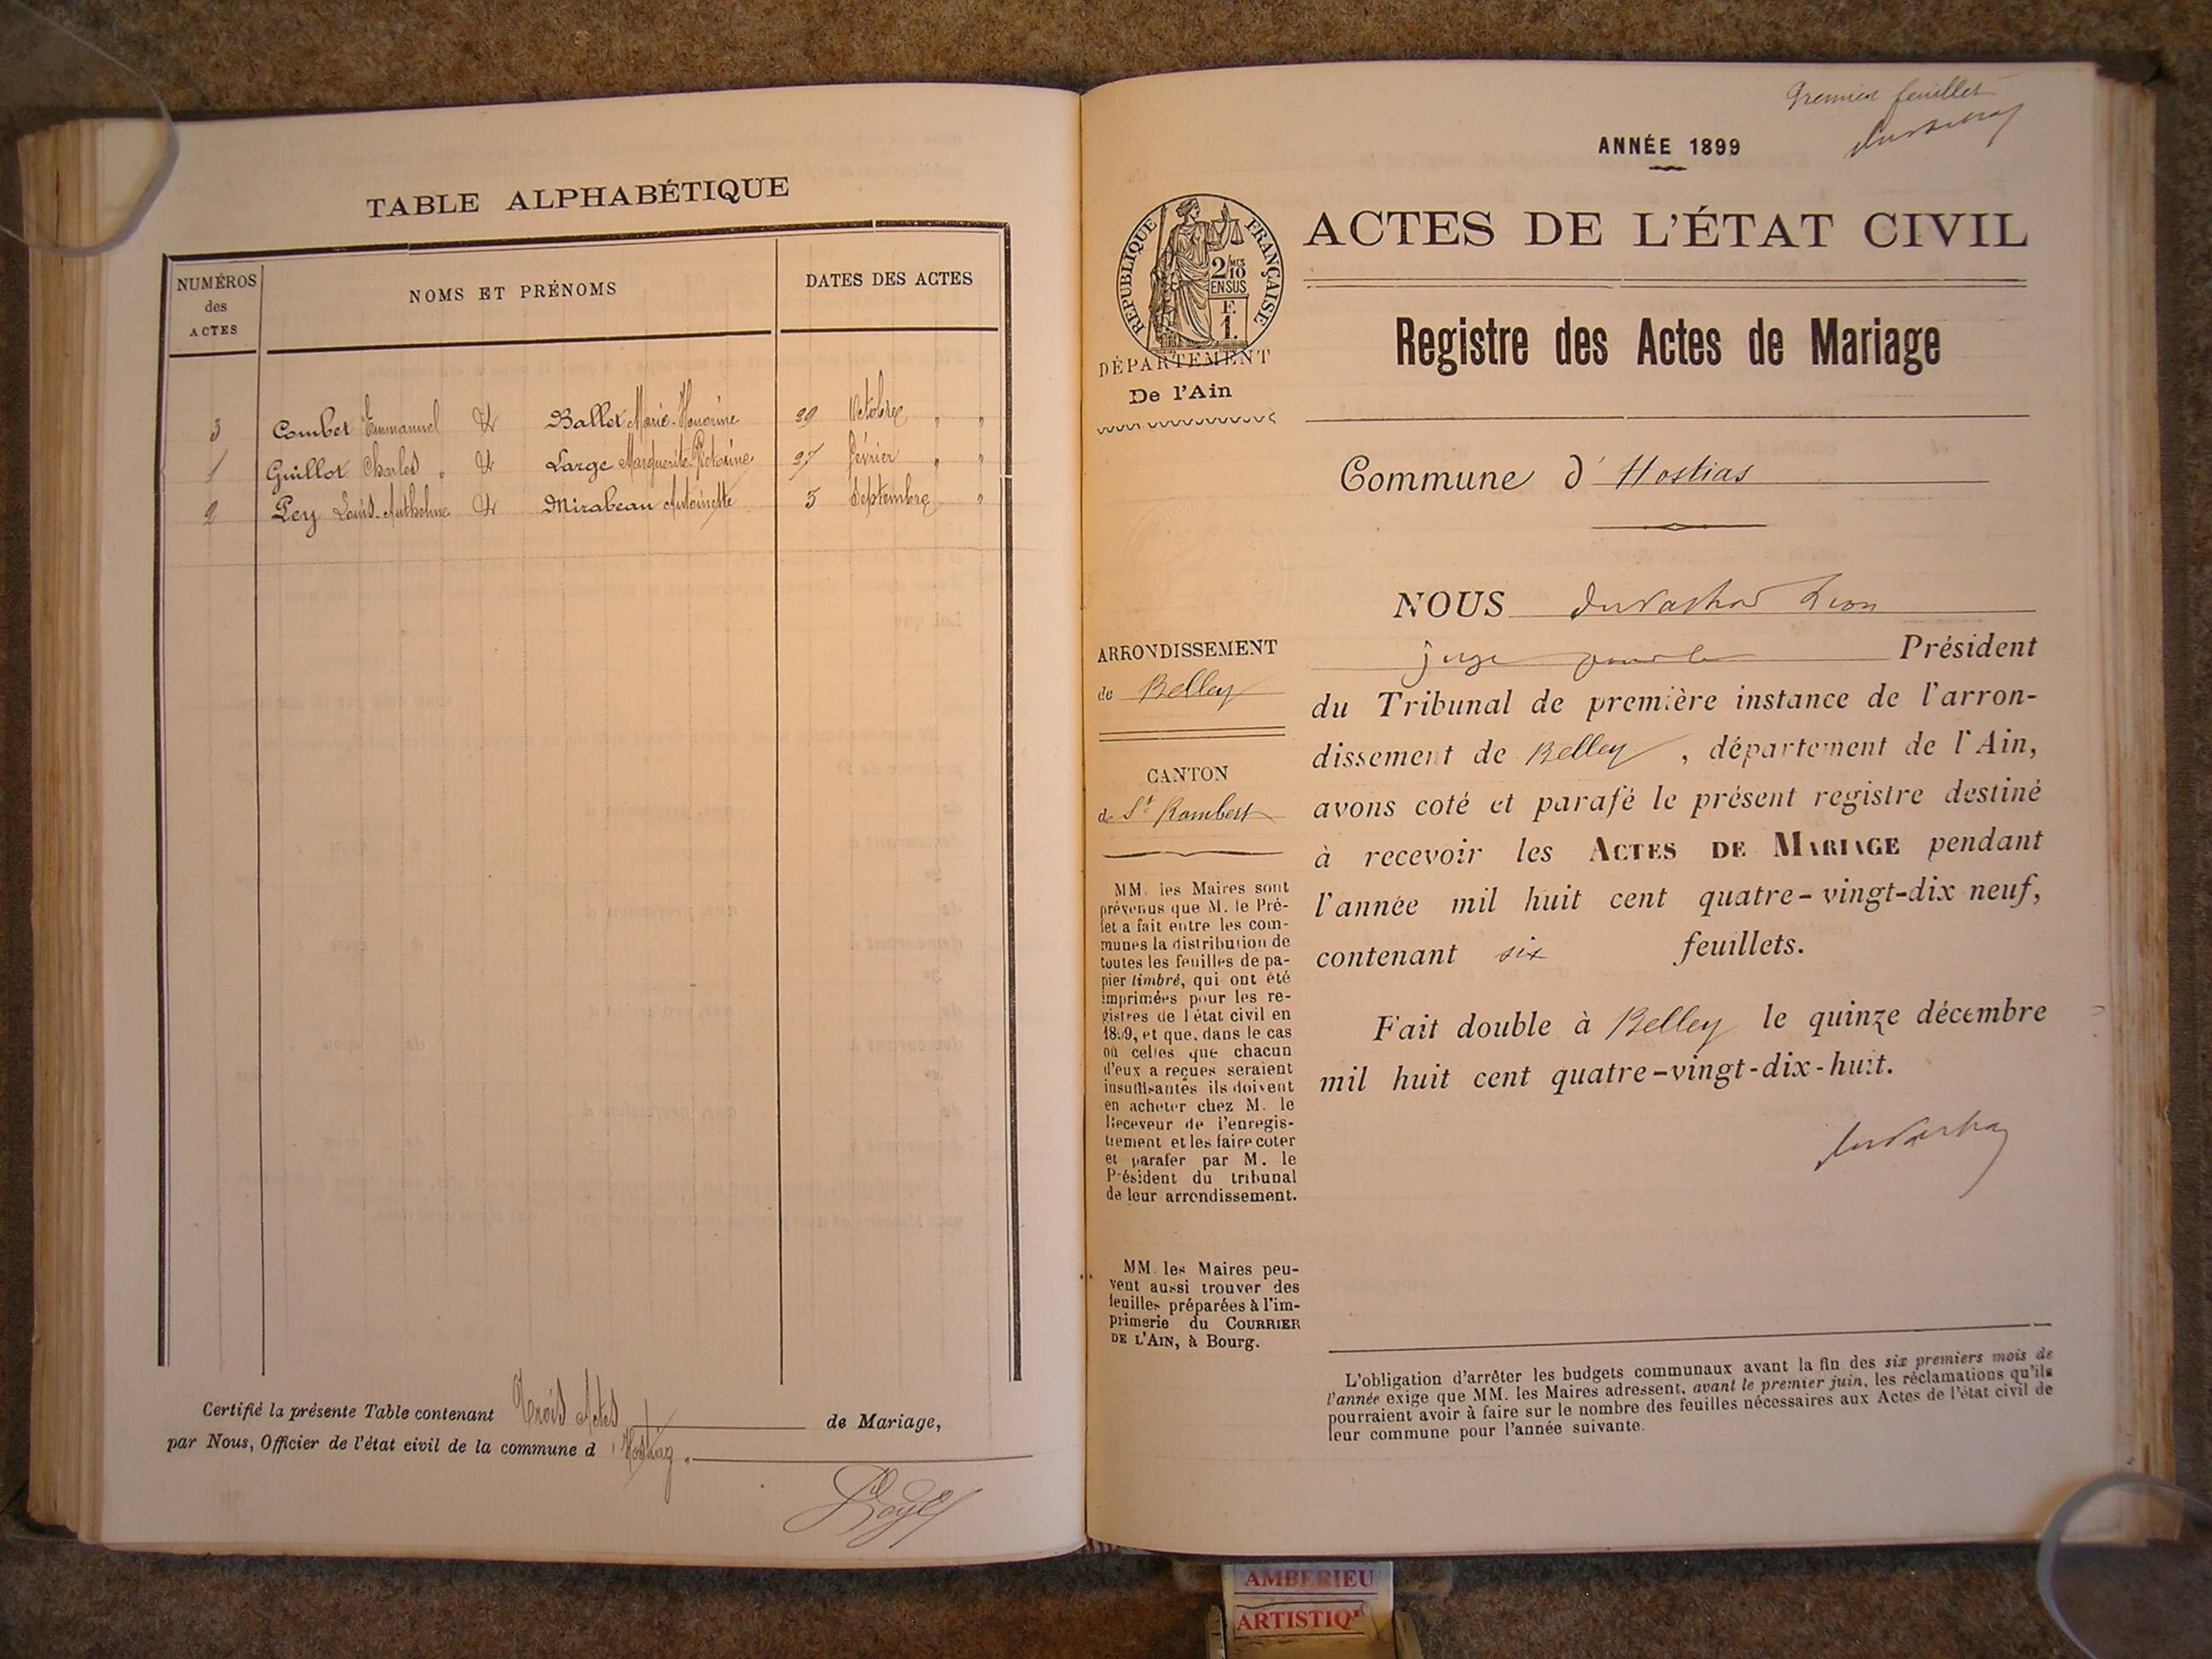 TABLE ALPHABÉTIQUE
NUMÉROS
des
ACTES
NOMS ET PRÉNOMS
DATES DES ACTES
3 Combet Emmanuel & Ballet Marie-Honorine 29 Octobre " "
1 Guillot Charles " & Large Marguerite-Victorine 27 février " "
2 Pey Louis-Anthelme & Mirabeau Antoinette 5 Septembre "
Certifié la présente Table contenant Trois Actes de Mariage,
par Nous, Officier de l'état civil de la commune d'Hostiaz.
Premier feuillet
ANNÉE 1899
RÉPUBLIQUE FRANÇAISE
2/10 MES
EN SUS
F.
1.
DÉPARTEMENT
De l'Ain
ACTES DE L'ÉTAT CIVIL
Registre des Actes de Mariage
Commune d'Hostias
ARRONDISSEMENT
de Belley
CANTON
de St Rambert
MM. les Maires sont
prévenus que M. le Pré-
fet a fait entre les com-
munes la distribution de
toutes les feuilles de pa-
pier timbré, qui ont été
imprimées pour les re-
gistres de l'état civil en
1899, et que, dans le cas
où celles que chacun
d'eux a reçues seraient
insuffisantes ils doivent
en acheter chez M. le
Receveur de l'enregis-
trement et les faire coter
et parafer par M. le
Président du tribunal
de leur arrondissement.
MM. les Maires peu-
vent aussi trouver des
feuilles préparées à l'im-
primerie du COURRIER
DE L'AIN, à Bourg.
NOUS Léon
juge pour le Président
du Tribunal de première instance de l'arron-
dissement de Belley, département de l'Ain,
avons coté et parafé le présent registre destiné
à recevoir les ACTES DE MARIAGE pendant
l'année mil huit cent quatre-vingt-dix neuf,
contenant six feuillets.
Fait double à Belley le quinze décembre
mil huit cent quatre-vingt-dix-huit.
L'obligation d'arrêter les budgets communaux avant la fin des six premiers mois de
l'année exige que MM. les Maires adressent, avant le premier juin, les réclamations qu'ils
pourraient avoir à faire sur le nombre des feuilles nécessaires aux Actes de l'état civil de
leur commune pour l'année suivante.
AMBERIEU
ARTISTIQ